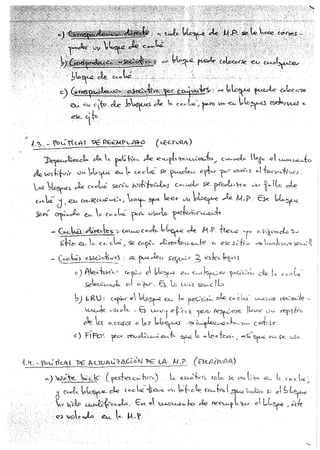 a) Correspondencia directa: a cada bloque de M.P. se le hace corres-
ponder un bloque de caché.
b) Correspondencia asociativa: un bloque puede colocarse en cualquier
bloque de caché.
c) Correspondencia asociativa por conjuntos: un bloque puede colocarse
en un cjto. de bloques de la caché, pero no en bloques externos a
ese cjto.
1.3.- POLÍTICAS DE REEMPLAZO (LECTURA)
Dependiendo de la política de emplazamiento, cuando llega el momento
de sustituir un bloque en la caché se pueden optar por varias alternativas
Los bloques de caché serán sustituidos cuando se produzca un fallo de
caché y, en consecuencia, haya que leer un bloque de M.P. Ese bloque
será copiado en la caché para usarlo posteriormente
- Cachés directas: como cada bloque de M.P. tiene ya asignado su
sitio en la caché, se copia directamente a ese sitio → hardware sencill
- Cachés asociativas: se pueden seguir 3 estrategias
a) Aleatoria: copiar el bloque en cualquier posición de la caché
seleccionada al azar. Es la más sencilla
b) LRU: copiar el bloque en la posición de caché menos reciente-
mente usada. Es muy eficaz pero requiere llevar un registro
de los accesos a los bloques → implementación costosa
c) FIFO: peor rendimiento que la aleatoria, así que no se usa
1.4.- POLÍTICAS DE ACTUALIZACIÓN DE LA M.P. (ESCRITURA)
a) Write back (postescritura). La escritura solo se realiza en la caché,
y cada bloque de caché tiene un bit de control que indica si el bloque
ha sido modificado. En el momento de reemplazar el bloque, éste
es volcado en la M.P.